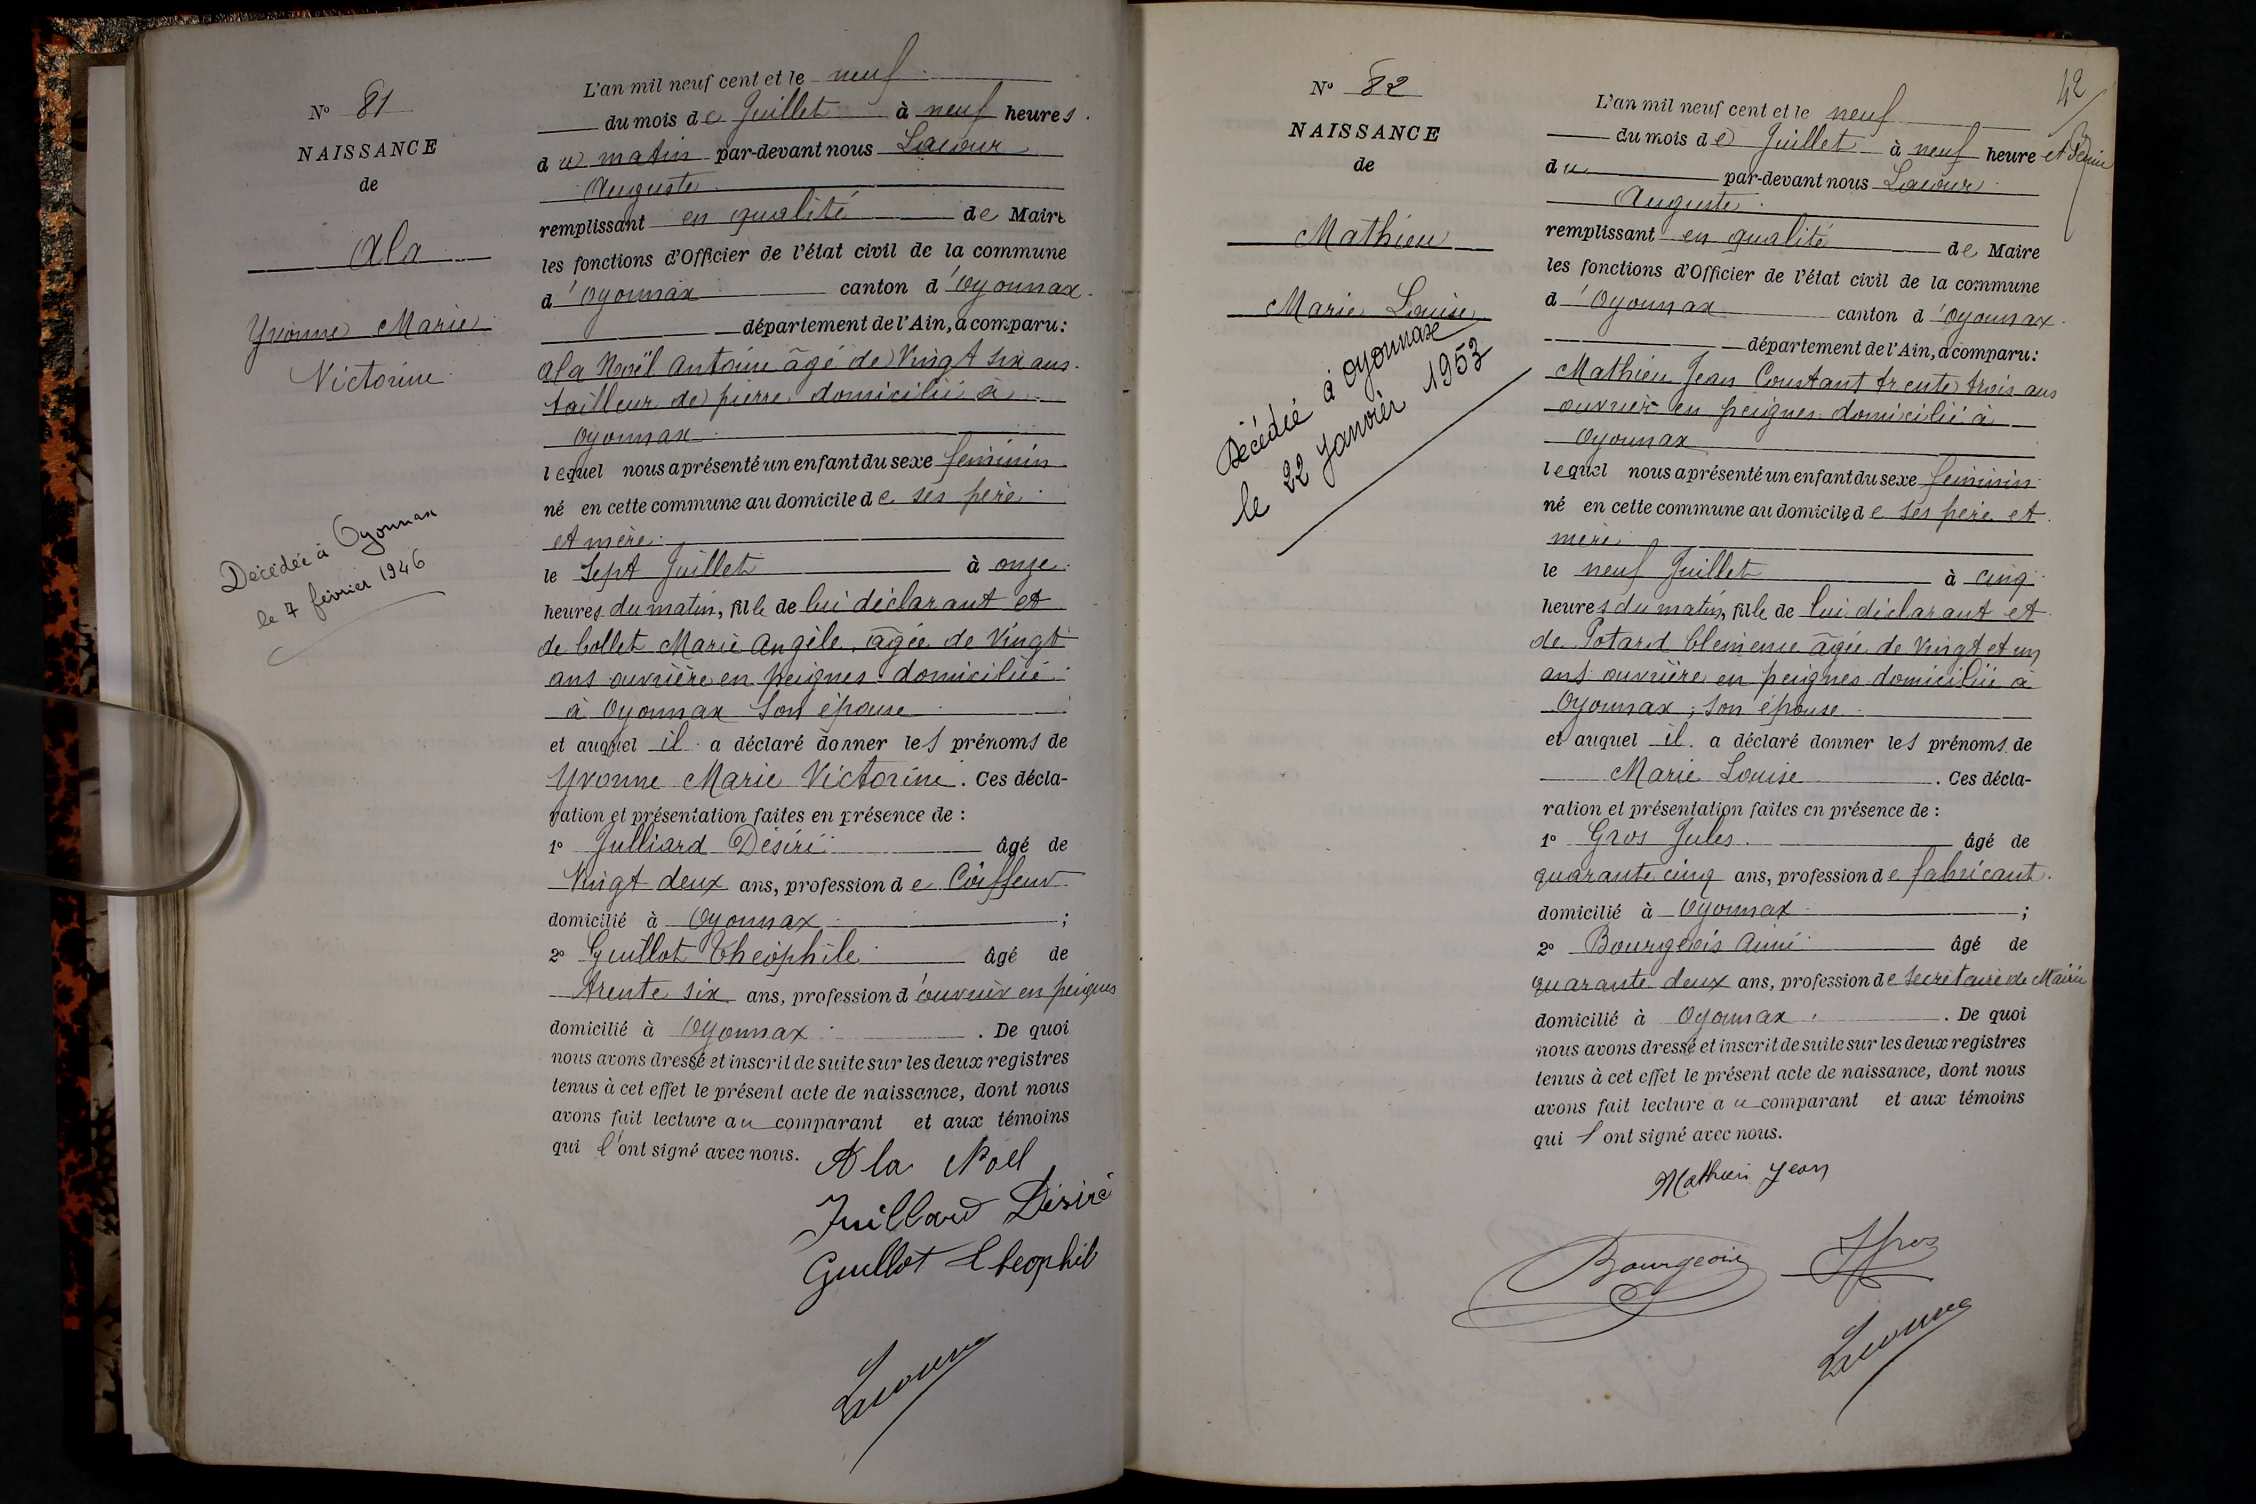 N° 81
NAISSANCE
de
Ala
Yvonne Marie
Victorine
Décédée à Oyonnax
le 7 février 1946
L'an mil neuf cent et le neuf
du mois de Juillet à neuf heures.
du matin par-devant nous Lacour
Auguste
remplissant en qualité de Maire
les fonctions d'Officier de l'état civil de la commune
d'Oyonnax canton d'Oyonnax.
département de l'Ain, a comparu:
Ala Noël Antoine âgé de Vingt six ans.
tailleur de pierre domicilié à
Oyonnax
lequel nous a présenté un enfant du sexe féminin
né en cette commune au domicile de ses père
et mère.
le Sept Juillet à onze
heures du matin, fille de lui déclarant et
de Collet Marie Angèle, âgée de Vingt
ans ouvrière en peignes domiciliée
à Oyonnax Son épouse
et auquel il a déclaré donner les prénoms de
Yvonne Marie Victorine. Ces décla-
ration et présentation faites en présence de :
1° Julliard Désiré âgé de
Vingt deux ans, profession de Coiffeur
domicilié à Oyonnax ;
2° Guillot Théophile âgé de
trente six ans, profession d'ouvrier en peignes
domicilié à Oyonnax. De quoi
nous avons dressé et inscrit de suite sur les deux registres
tenus à cet effet le présent acte de naissance, dont nous
avons fait lecture au comparant et aux témoins
qui l'ont signé avec nous.
Ala Noël
Juillard Désiré
Guillot Theophile
Lacour
42
N° 82
NAISSANCE
de
Mathieu
Marie Louise
Décédée à Oyonnax
le 22 Janvier 1953
L'an mil neuf cent et le neuf
du mois de Juillet à neuf heure et demie
du par-devant nous Lacour
Auguste
remplissant en qualité de Maire
les fonctions d'Officier de l'état civil de la commune
d'Oyonnax canton d'Oyonnax.
département de l'Ain, a comparu:
Mathieu Jean Constant trente trois ans
ouvrier en peignes domicilié à
Oyonnax
lequel nous a présenté un enfant du sexe féminin
né en cette commune au domicile de ses père et
mère
le neuf Juillet à cinq
heures du matin, fille de lui déclarant et
de Potard Clémence âgée de Vingt et un
ans ouvrière en peignes domiciliée à
Oyonnax, son épouse
et auquel il a déclaré donner les prénoms de
Marie Louise. Ces décla-
ration et présentation faites en présence de :
1° Gros Jules âgé de
quarante cinq ans, profession de fabricant.
domicilié à Oyonnax ;
2° Bourgeois Aimé âgé de
quarante deux ans, profession de Secrétaire de Mairie
domicilié à Oyonnax. De quoi
nous avons dressé et inscrit de suite sur les deux registres
tenus à cet effet le présent acte de naissance, dont nous
avons fait lecture au comparant et aux témoins
qui l'ont signé avec nous.
Mathieu Jean
Bourgeois JGros
Lacour